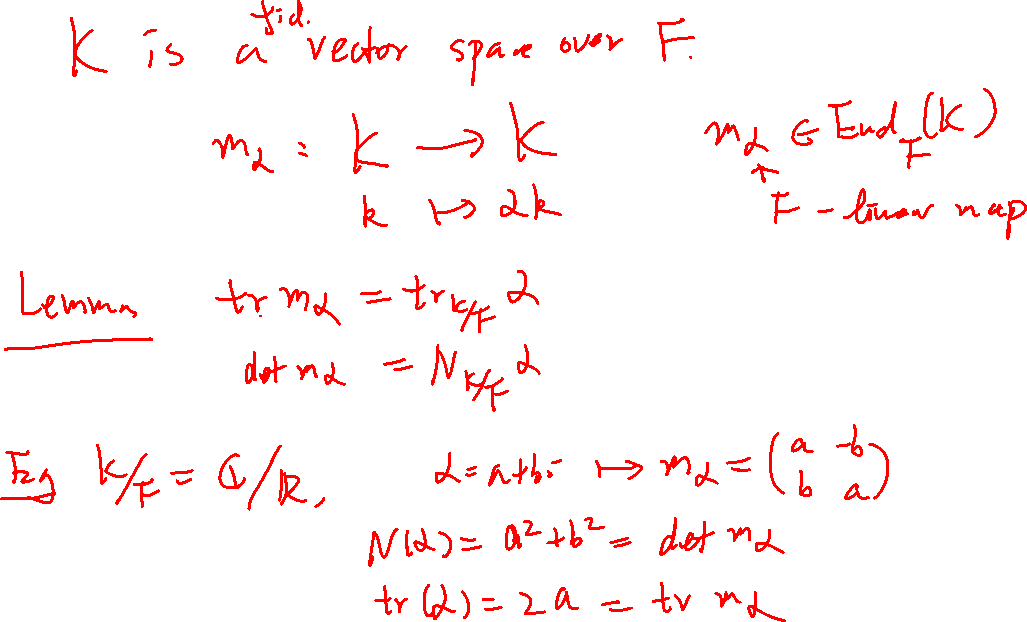 K is a f.d. vector space over F.
m_α : K → K
m_α ∈ End_F(K)
k ↦ αk
↑ F-linear map
Lemma tr m_α = tr_{K/F} α
det m_α = N_{K/F} α
Eg K/F = ℂ/ℝ, α = a+bi ↦ m_α = (a -b
b a)
N(α) = a²+b² = det m_α
tr(α) = 2a = tr m_α